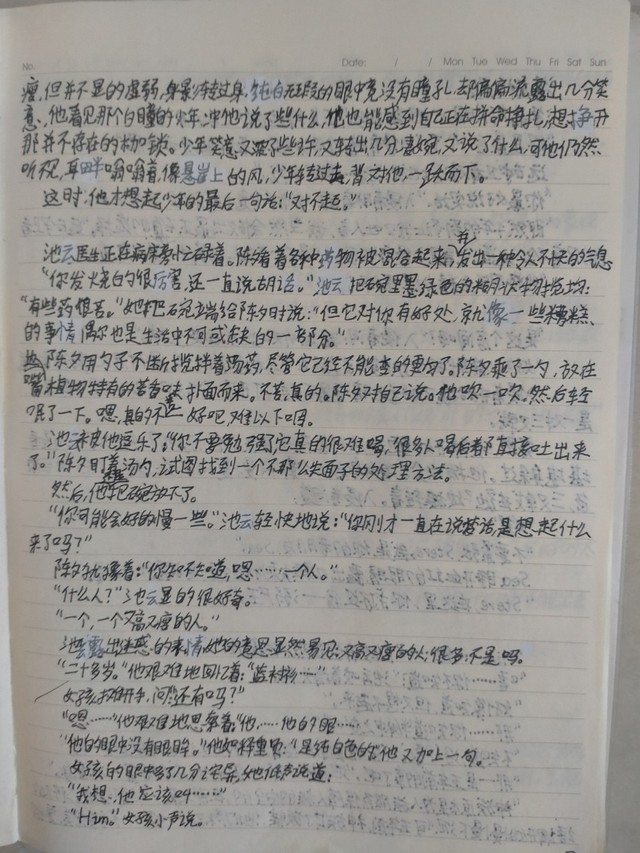 No.
Date: / / Mon Tue Wed Thu Fri Sat Sun
瘦,但并不显的虚弱,身影转过身,纯白无瑕的眼中竟没有瞳孔,却偏偏流露出几分笑
意。他看见那个白瞳的少年冲他说了些什么,他也能感到自己正在拼命挣扎,想挣开
那并不存在的枷锁。少年笑意又浓了些许,又转出几分喜悦,又说了什么,可他仍然
听不见,耳畔嗡嗡着,像悬崖上的风,少年转过去,背对他,一跃而下。
这时,他才想起少年的最后一句话:“对不起。”
池云医生正在病床旁忙碌着。陈夕看着各种药物被混合起来,并发出一种令人不快的气息
“你发烧的很厉害,还一直说胡话。”池云把碗里墨绿色的糊状物搅匀:
“有些药很苦。”她把碗端给陈夕时说:“但它对你有好处,就像一些糟糕
的事情偶尔也是生活中不可或缺的一部分。”
陈夕用勺子不断搅拌着汤药,尽管它已经不能查的更匀了。陈夕乘了一勺,放在
嘴 植物特有的苦香味扑面而来。不苦,真的。陈夕对自己说。他吹一吹。然后轻
抿了一下。嗯,真的不苦 好吧,难以下咽。
池云被他逗乐了:“你不要勉强,它真的很难喝,很多人喝后都直接吐出来
了。”陈夕盯着汤药,试图找到一个不那么失面子的处理方法。
然后,他把碗放下了。
“你可能会好的慢一些。”池云轻快地说:“你刚才一直在说梦话,是想起什么
来了吗?”
陈夕犹豫着:“你知不知道,嗯……一个人。”
“什么人?”池云显的很好奇。
“一个,一个又高又瘦的人。”
池云露出迷惑的表情,她的意思显然易见:又高又瘦的人很多,不是吗。
“二十多岁。”他艰难地回忆着:“蓝衬衫……”
女孩摊开手,问“还有吗?”
“嗯……”他艰难地思索着,“他……他的眼……
“他的眼中没有眼眸。”他如释重负:“是纯白色的。”他又加上一句。
女孩的眼中多了几分诧异,她低声说道:
“我想,他应该叫……”
“Him。”女孩小声说。